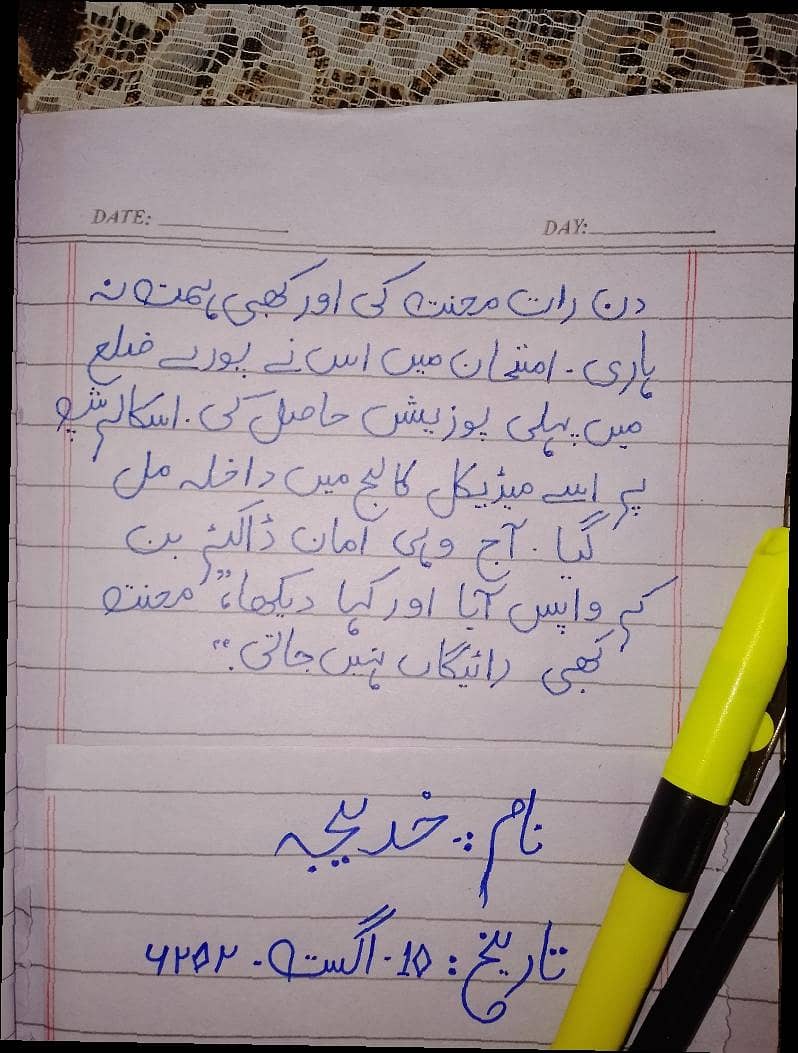 DATE: DAY:
دن رات محنت کی اور کبھی ہمت نہ
ہاری۔ امتحان میں اس نے پورے ضلع
میں پہلی پوزیشن حاصل کی۔ اسکالرشپ
پر اسے میڈیکل کالج میں داخلہ مل
گیا۔ آج وہی امان ڈاکٹر بن
کر واپس آیا اور کہا دیکھا، "محنت
کبھی رائیگاں نہیں جاتی۔"
نام:۔ خدیجہ
تاریخ: ۱۵۔ اگست۔